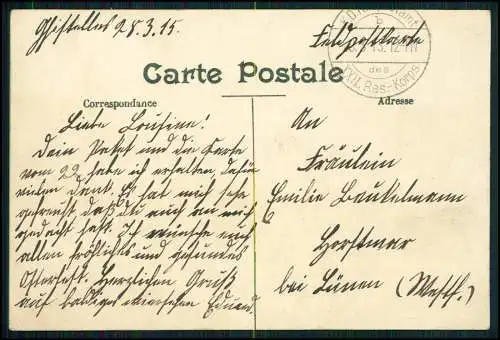 Ghistelles 28.3.15.
Feldpostkarte
des
XXII. Res.-Korps
Carte Postale
Correspondance
Adresse
Liebe Cousine!
Dein Paket und die Karte
vom 22 habe ich erhalten. Dafür
vielen Dank. Es hat mich sehr
gefreut daß du auch an mich
gedacht hast. Ich wünsche euch
allen fröhliches und gesundes
Osterfest. Herzlichen Gruß
auf baldiges wiedersehen Eduard.
An
Fräulein
Emilie Baukelmann
Horstmar
bei Lünen (Westf.)